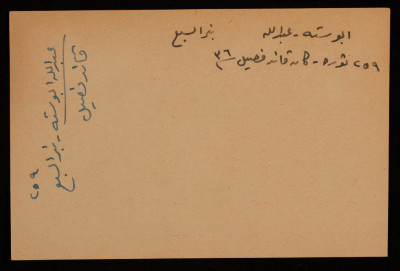 ابو سته - عبدالله    بئر السبع
٢٥٩ ثوره - كان قائد فصيل ٣٦
عبدالله ابو سته - بئر السبع
قائد فصيل
٢٥٩